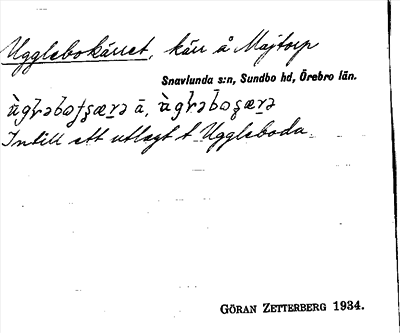 Ugglebokärret, kärr å Majtorp
Snavlunda s:n, Sundbo hd, Örebro län.
Intill ett utlagt t Uggleboda.
GÖRAN ZETTERBERG 1934.